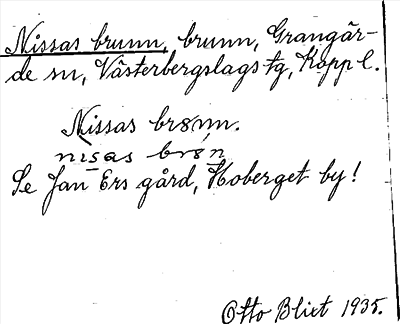 Nissas brunn, brunn, Grangär-
de sn, Västerbergslags tg, Kopp l.
Nissas brønn.
nisas brøn
Se Jan Ers gård, Hoberget by!
Otto Blixt 1935.